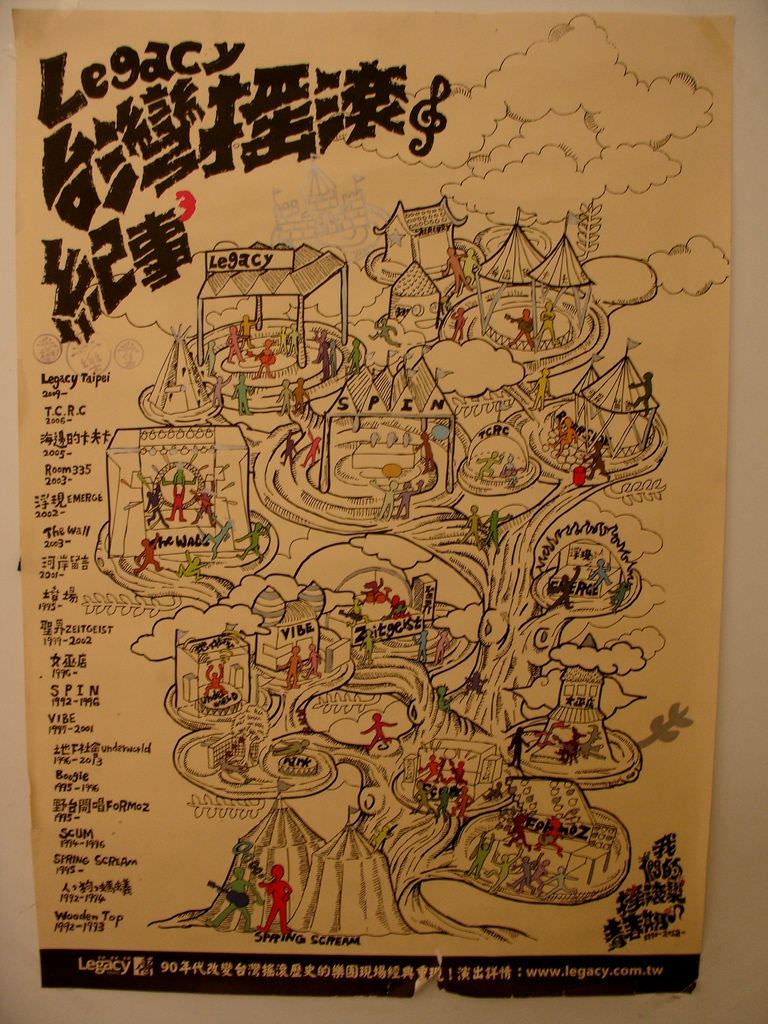 Legacy
台灣搖滾
紀事3
Legacy Taipei
2009-
T.C.R.C
2006-
海邊的卡夫卡
2005-
Room335
2003-
浮現EMERGE
2002-
The Wall
2003-
河岸留言
2001-
壇場
1995-
聖界ZEITGEIST
1999-2002
女巫店
1996-
SPIN
1992-1996
VIBE
1997-2001
地下社會underworld
1996-2013
Boogie
1995-1996
野台開唱FORMOZ
1995-
SCUM
1994-1996
SPRING SCREAM
1995-
人狗螞蟻
1992-1994
Wooden Top
1992-1993
Legacy
SPIN
TCRC
The WALL
浮現
EMERGE
VIBE
Zeitgeist
女巫店
Scum
FORMOZ
SPRING SCREAM
我們的
搖滾
青春期
Legacy 90年代改變台灣搖滾歷史的樂團現場經典重現！演出詳情：www.legacy.com.tw